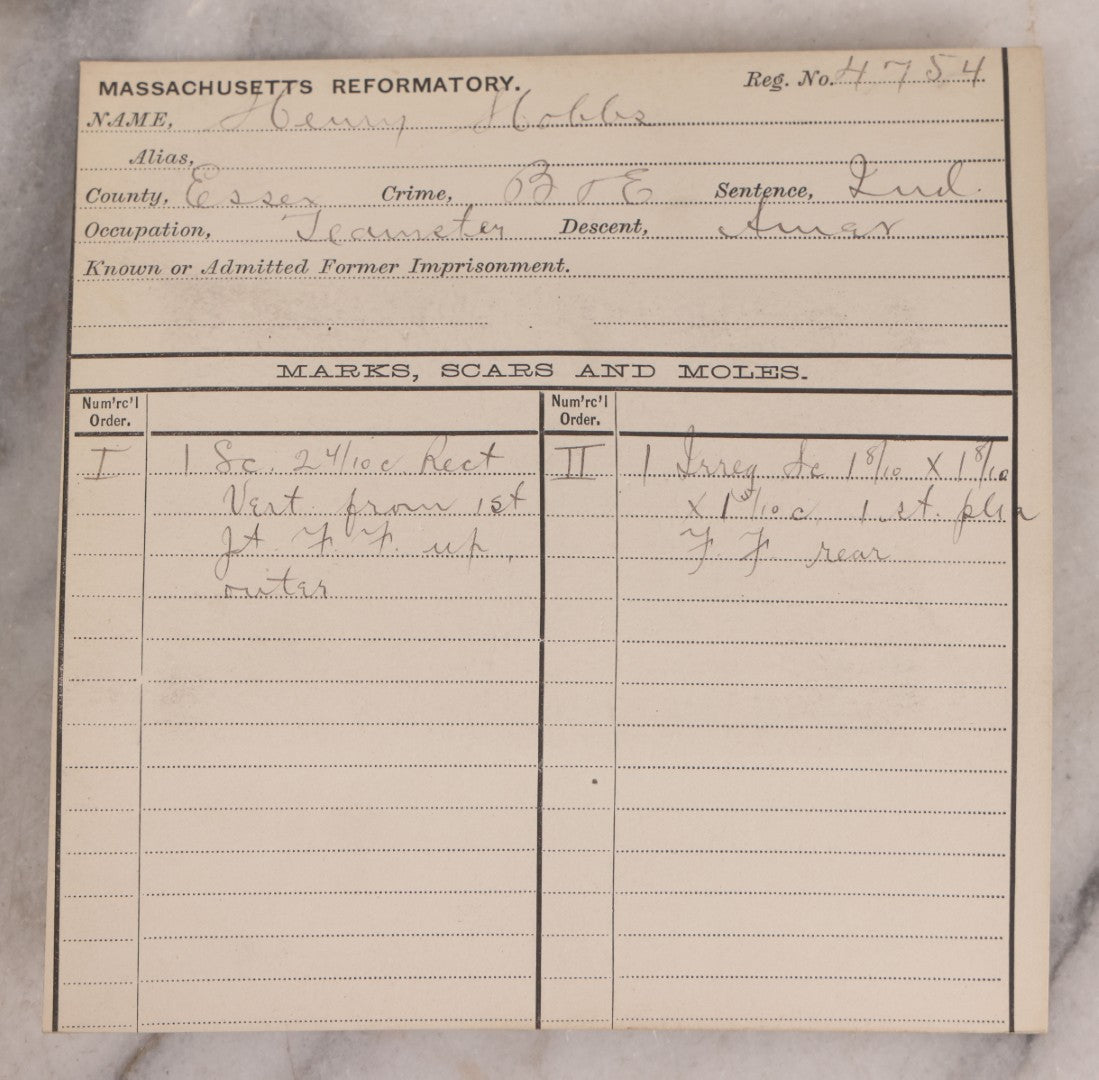 MASSACHUSETTS REFORMATORY. Reg. No. 4754
NAME, Henry Hobbs
Alias,
County, Essex Crime, B & E Sentence, Ind.
Occupation, Teamster Descent, Amer
Known or Admitted Former Imprisonment.
MARKS, SCARS AND MOLES.
Num'rc'l Order. Num'rc'l Order.
I 1 Sc. 2 4/10 c Rect II 1 Irreg Sc 1 8/10 X 1 8/10
Vert. from 1st x 1 5/10 c. 1. st. pha
Jt. F. F. up, F. F. rear
outer